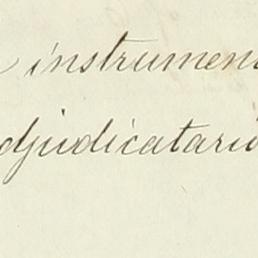 instrumen
djudicatario